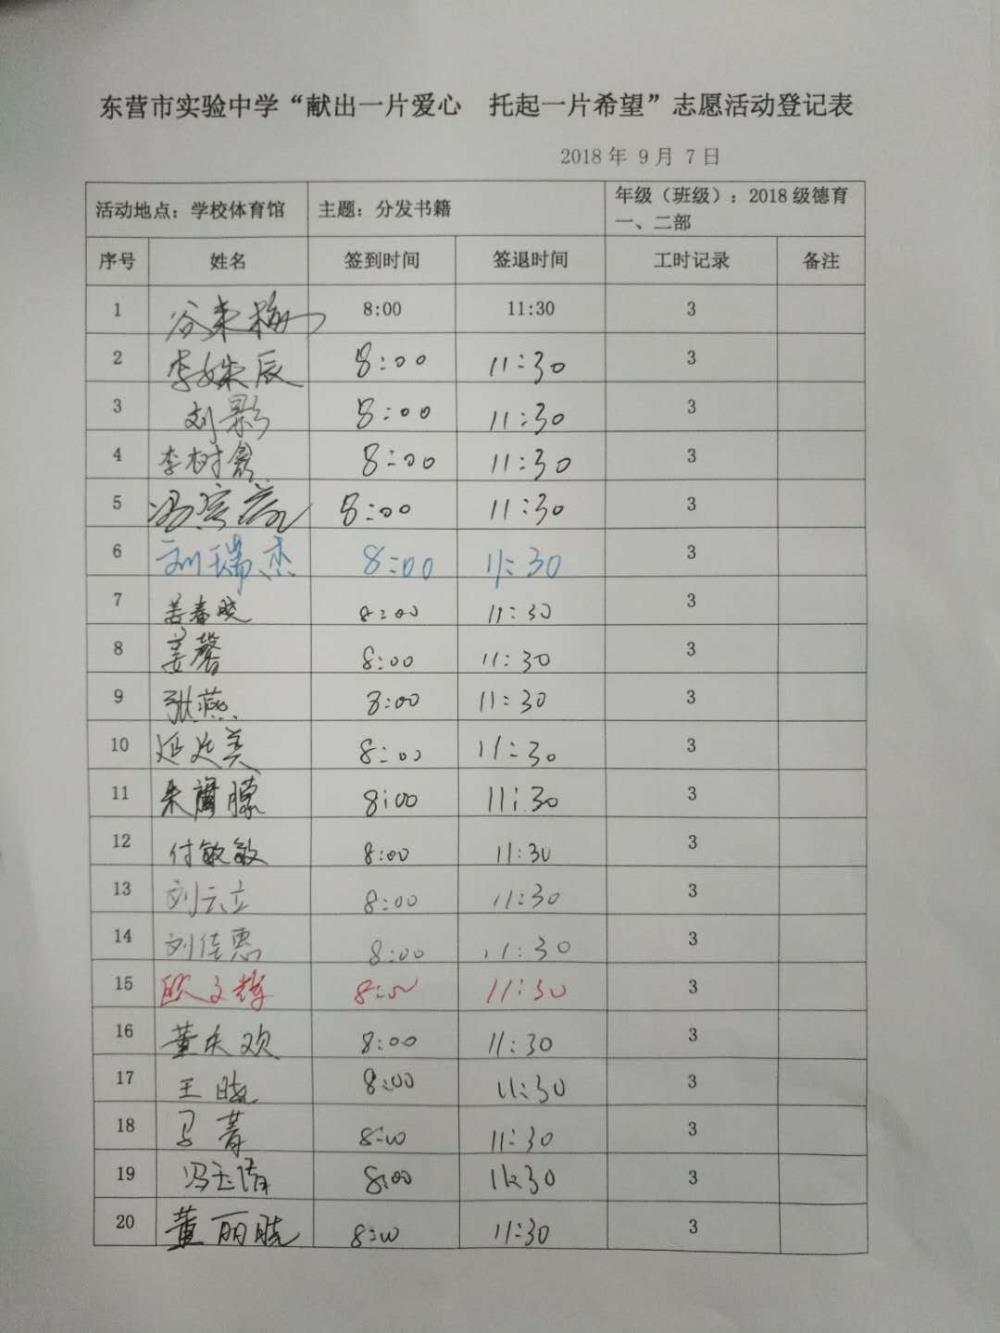 东营市实验中学“献出一片爱心 托起一片希望”志愿活动登记表
2018 年 9 月 7 日
活动地点：学校体育馆 主题：分发书籍 年级（班级）：2018 级德育一、二部
序号 姓名 签到时间 签退时间 工时记录 备注
1 谷来梅 8:00 11:30 3
2 李姝辰 8:00 11:30 3
3 刘影 8:00 11:30 3
4 李树 8:00 11:30 3
5 8:00 11:30 3
6 刘瑞杰 8:00 11:30 3
7 姜春晓 8:00 11:30 3
8 姜馨 8:00 11:30 3
9 张燕 8:00 11:30 3
10 延廷美 8:00 11:30 3
11 8:00 11:30 3
12 付敏敏 8:00 11:30 3
13 刘云立 8:00 11:30 3
14 刘佳惠 8:00 11:30 3
15 欧文辉 8:00 11:30 3
16 董乐欢 8:00 11:30 3
17 王晓 8:00 11:30 3
18 马菁 8:00 11:30 3
19 冯玉倩 8:00 11:30 3
20 董丽晓 8:00 11:30 3